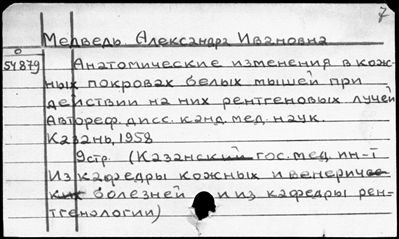 7
Медведь Александра Ивановна
54879 Анатомические изменения в кож-
ных покровах белых мышей при
действии на них рентгеновых лучей
Автореф. дисс. канд. мед. наук.
Казань, 1958
9стр. (Казанский гос. мед. ин-т
Из кафедры кожных и венериче-
ких болезней и из кафедры рен-
тгенологии)